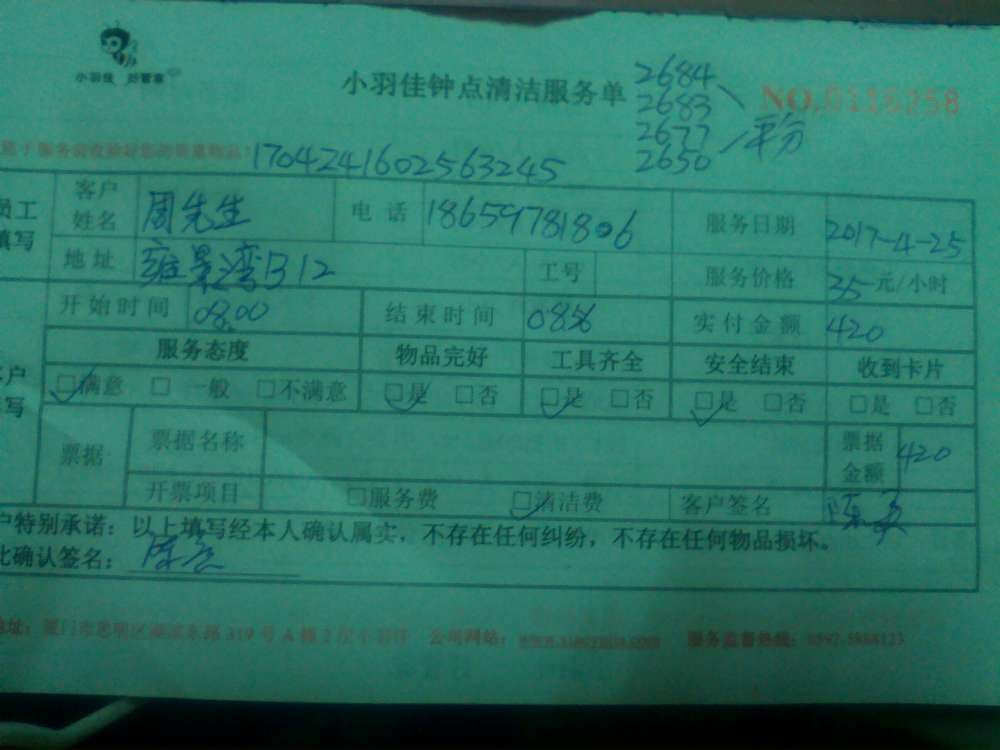 小羽佳 好管家
小羽佳钟点清洁服务单
2684
NO.0116258
2683
2677 平分
2650
17042416025563245
员工填写 客户姓名 周先生 电话 18659781806 服务日期 2017-4-25
地址 雍景湾B12 工号 服务价格 35元/小时
开始时间 08:00 结束时间 0856 实付金额 420
服务态度 物品完好 工具齐全 安全结束 收到卡片
☑满意 □一般 □不满意 ☑是 □否 ☑是 □否 ☑是 □否 □是 □否
票据 票据名称 票据金额 420
开票项目 □服务费 ☑清洁费 客户签名
户特别承诺：以上填写经本人确认属实，不存在任何纠纷，不存在任何物品损坏。
此确认签名：
地址：厦门市思明区 东路319号A幢2层小羽佳 公司网站： 服务监督热线：